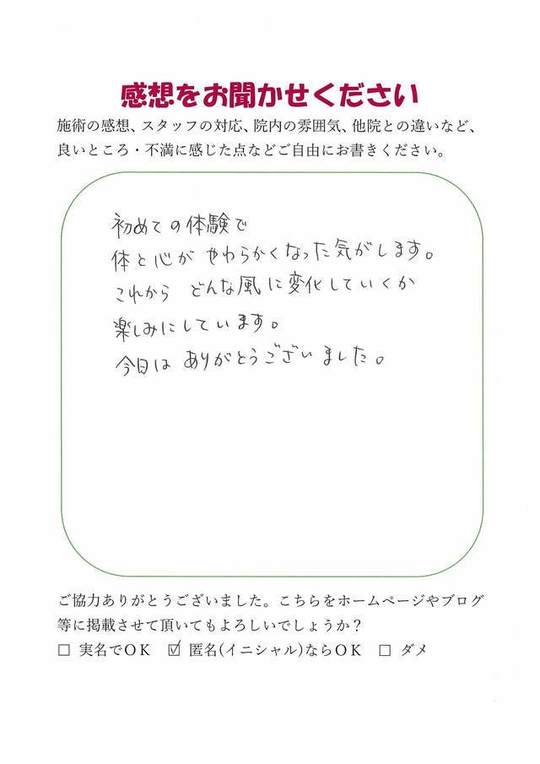 感想をお聞かせください
施術の感想、スタッフの対応、院内の雰囲気、他院との違いなど、
良いところ・不満に感じた点などご自由にお書きください。
初めての体験で
体と心が やわらかくなった気がします。
これから どんな風に変化していくか
楽しみにしています。
今日は ありがとうございました。
ご協力ありがとうございました。こちらをホームページやブログ
等に掲載させて頂いてもよろしいでしょうか？
☐ 実名でＯＫ ☑ 匿名(イニシャル)ならＯＫ ☐ ダメ